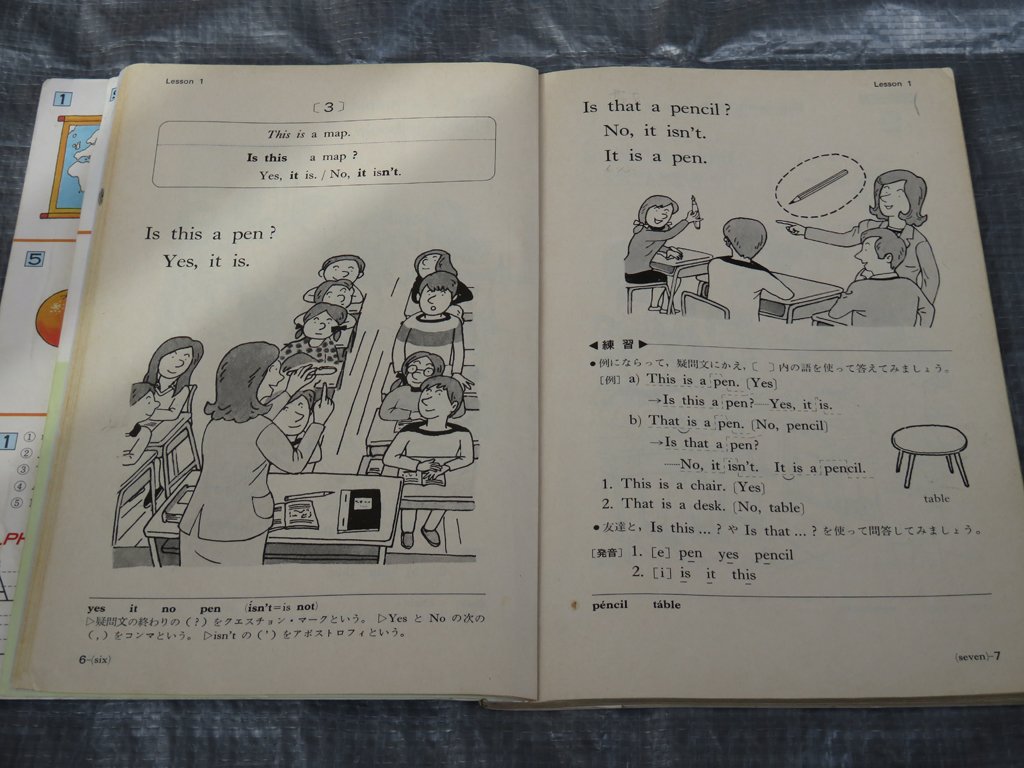 1
5
1
①
②
③
④
⑤
Lesson 1
〔3〕
This is a map.
Is this a map ?
Yes, it is. / No, it isn't.
Is this a pen ?
Yes, it is.
yes it no pen (ísn't=is not)
▷疑問文の終わりの ( ? ) をクエスチョン・マークという。 ▷Yes と No の次の
( , ) をコンマという。 ▷isn't の ( ' ) をアポストロフィという。
6-(six)
Lesson 1
Is that a pencil ?
No, it isn't.
It is a pen.
◀ 練 習 ▶
●例にならって, 疑問文にかえ, 〔 〕内の語を使って答えてみましょう。
〔例〕 a) This is a pen. 〔Yes〕
→Is this a pen? ……Yes, it is.
b) That is a pen. 〔No, pencil〕
→Is that a pen?
……No, it isn't. It is a pencil.
table
1. This is a chair. 〔Yes〕
2. That is a desk. 〔No, table〕
●友達と, Is this … ? や Is that … ? を使って問答してみましょう。
〔発音〕 1. [e] pen yes pencil
2. [i] is it this
péncil táble
(seven)-7